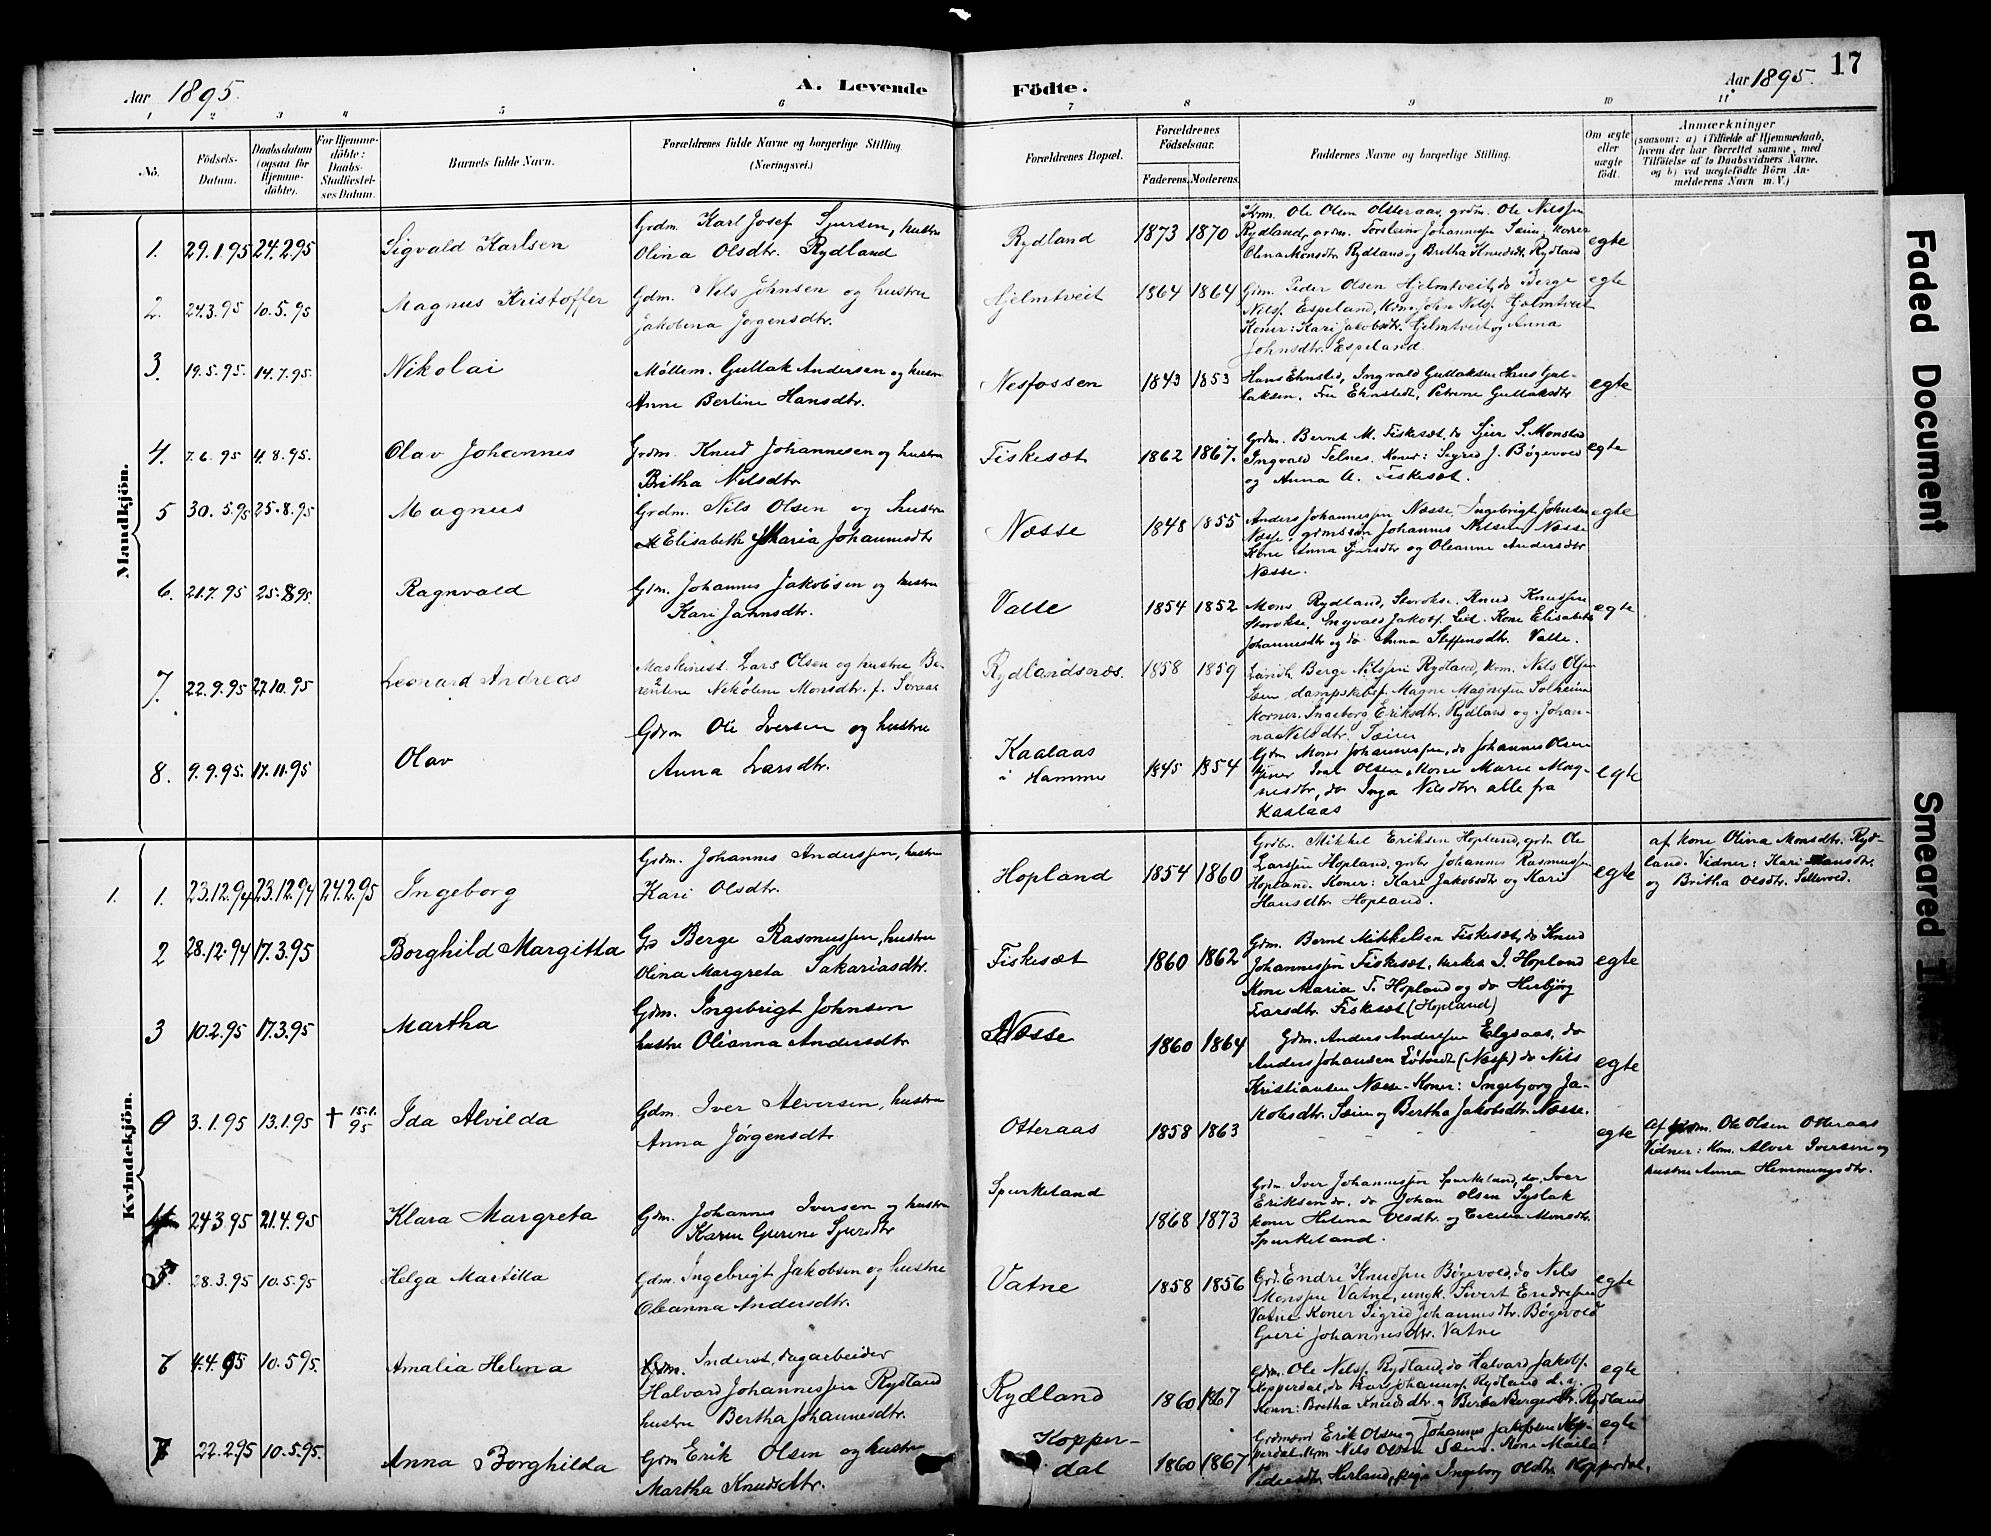 17
Aar 1895. A. Levende Födte. Aar 1895.
1 2 3 4 5 6 7 8 9 10 11
No. Födsels-Datum. Daabsdatum (ogsaa for Hjemmedöbte). For Hjemmedöbte: Daabs-Stadfæstelses Datum. Barnets fulde Navn. Forældrenes fulde Navne og borgerlige Stilling. (Næringsvei.) Forældrenes Bopæl. Forældrenes Födselsaar. Faderens. Moderens. Faddernes Navne og borgerlige Stilling. Om ægte eller uægte födt. Anmærkninger (saasom: a) i Tilfælde af Hjemmedaab, hvem der har forrettet samme, med Tilföielse af to Daabsvidners Navne, og b) ved uægtefödte Börn Anmelderens Navn m. V.)
Mandkjön.
1. 29.1.95 24.2.95 Sigvald Karlsen Grdm. Karl Josef Sjursen, hustru Olina Olsdtr. Rydland Rydland 1873 1870 Krm. Ole Olsen Otteraas, grdm. Ole Nilssen Rydland, grdm. Torsteins Johannessen Sæim, Koner Olina Monsdtr Rydland og Britha Knudsdtr. Rydland egte
2. 24.3.95 10.5.95 Magnus Kristoffer Gdm. Nils Johnsen og hustru Jakobina Jørgensdtr. Hjelmtveit 1864 1864 Gdm. Peder Olsen Hjelmtveit, do Berge Nilss. Espeland, John Nilss. Hjelmtveit Koner: Kari Jakobsdtr. Hjelmtveit og Anna Johnsdtr. Espeland. egte
3. 19.5.95. 14.7.95. Nikolai Møllem. Gullak Andersen og hustru Anne Bertine Hansdtr. Nesfossen 1843 1853 Hans Ehnsted, Ingvald Gullaksen Hans Gullaksen. Fru Ehnstedt, Petrine Gullaksdtr egte
4. 7.6.95 4.8.95. Olav Johannes Grdm. Knud Johannesen og hustru Britha Nilsdtr Fiskesæt 1862 1867. Grdm. Bernt M. Fiskesæt, do Sjur S. Monstad Ingvald Felnes, Koner: Sigrid J. Bøgevold og Anna A. Fiskesæt. egte
5 30.5.95 25.8.95 Magnus Grdm. Nils Olsen og hustru Elisabeth Maria Johannesdtr Næsse 1848 1855 Anders Johannessen Næsse, Ingebrigt Johnsen Næsse, grdmssøn Johannes Nilsen Næsse Kone Anna Sjursdtr og Oleanne Andersdtr Næsse. egte
6. 21.7.95 25.8.95. Ragnvald Gdm. Johannes Jakobsen og hustru Kari Jahnsdtr. Valle 1854 1852 Mons Rydland, Storokse, Knud Knussen Storokse, Ingvald Jakobs. Lid. Kone Elisabeth Johannesdtr og do Anna Steffensdtr. Valle. egte
7. 22.9.95 27.10.95 Leonard Andreas Maskinist. Lars Olsen og hustru Berentine Nikoline Monsdtr. Rydlandsnæs. 1858 1859 Berge Nilssen Rydland, krm. Nils Olsen Sæm, dampskibsf. Magne Magnesen Solheim Koner. Ingeborg Eriksdtr. Rydland og Johanna Nilsdtr. Sæim
8. 9.9.95. 17.11.95 Olav Gdrm Ole Iversen og hustru Anna Larsdtr. Kaalaas i Hammer 1845 1854 Gdm Mons Johannessen, do Johannes Olsen Ivar Olsen, Kone Marie Magnesdtr, do Inga Nilsdtr alle fra Kaalaas egte
Kvindekjön.
1. 1. 23.12.94 23.12.94 24.2.95 Ingeborg Grdm. Johannes Anderssen, hustru Kari Olsdtr. Hopland 1854 1860 Grdbr. Mikkel Eriksen Hopland, grbr Ole Larssen Hopland, grbr Johannes Rasmussen Hopland. Koner: Kari Jakobsdtr og Kari Hansdtr. Hopland. egte af kone Olina Monsdtr. Rydland. Vidner: Kari Hansdtr. og Britha Olsdtr. Sellevold.
2 28.12.94 17.3.95 Borghild Margitta Gd Berge Rasmussen, hustru Olina Margreta Sakariasdtr. Fiskesæt 1860 1862 Gdm. Bernt Mikkelsen Fiskesæt, do Knud Johannessen Fiskesæt, I. Hopland Kone Maria T. Hopland og do Herbjörg Larsdtr. Fiskesæt (Hopland) egte
3 10.2.95 17.3.95 Martha Gdm. Ingebrigt Johnsen hustru Olianna Andersdtr Næsse 1860 1864 Gdm. Anders Anderssen Elgsaas, do Anders Johansen Løtvedt (Næsse) do Nils Kristiansen Næsse - Koner: Ingebjorg Jakobsdtr. Sæim og Bertha Jakobsdtr. Næsse. egte
0 3.1.95 13.1.95 † 15.1.95 Ida Alvilda Gdm. Iver Alversen, hustru Anna Jørgensdtr Otteraas 1858 1863 - - - - egte af grdm. Ole Olsen Otteraas Vidner: Krm. Alver Iversen og hustru Anna Hemmingsdtr.
4 24.3.95 21.4.95 Klara Margreta Gdm. Johannes Iversen og hustru Karen Gurine Sjursdtr Spurkeland 1868 1873 Grdm. Iver Johannessen Spurkeland, do, Iver Eriksen do, do Johan Olsen Syslak koner Helena Olsdtr. og Cecilia Monsdtr. Spurkeland.
5. 28.3.95 10.5.95 Helga Martilla Gdm. Ingebrigt Jakobsen og hustru Oleanna Andersdtr. Vatne 1858 1856 Grd. Endre Knudsen Bøgevold, do Nils Monssen Vatne, ungk. Sivert Endresen Vatne Koner Sigrid Johannesdtr. Bøgevold Guri Johannesdtr. Vatne egte
6 4.4.95 10.5.95. Amalia Helena Gdm. Inderst, dagarbeider Halvard Johannessen Rydland hustru Bertha Johannesdtr. Rydland 1860 1867 Gdm. Ole Nilss. Rydland, do Halvard Jakobs. Kopperdal, do Lars Johanness. Rydland d.y. Koner: Britha Knudsdtr og Berta Bergesdtr. Rydland egte
7 22.2.95 10.5.95. Anna Borghilda Gdm Erik Olsen og hustru Martha Knudsdtr. Kopperdal 1860 1867 Grdmænd Erik Olsen og Johannes Jakobsen Kopperdal. Krm Nils Olsen Sæim. Kone Maila Pedersdtr Herland, pige Ingeborg Olsdtr Kopperdal. egte
Faded Document
Smeared